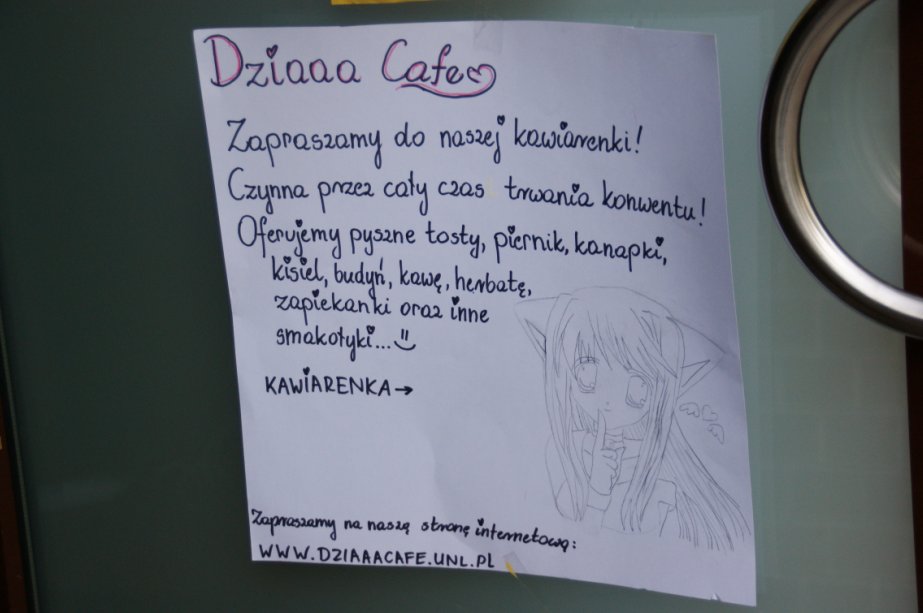 Dziaaa Cafe
Zapraszamy do naszej kawiarenki!
Czynna przez cały czas trwania konwentu!
Oferujemy pyszne tosty, piernik, kanapki,
kisiel, budyń, kawę, herbatę,
zapiekanki oraz inne
smakołyki...
KAWIARENKA→
Zapraszamy na naszę stronę internetową:
WWW.DZIAAACAFE.UNL.PL